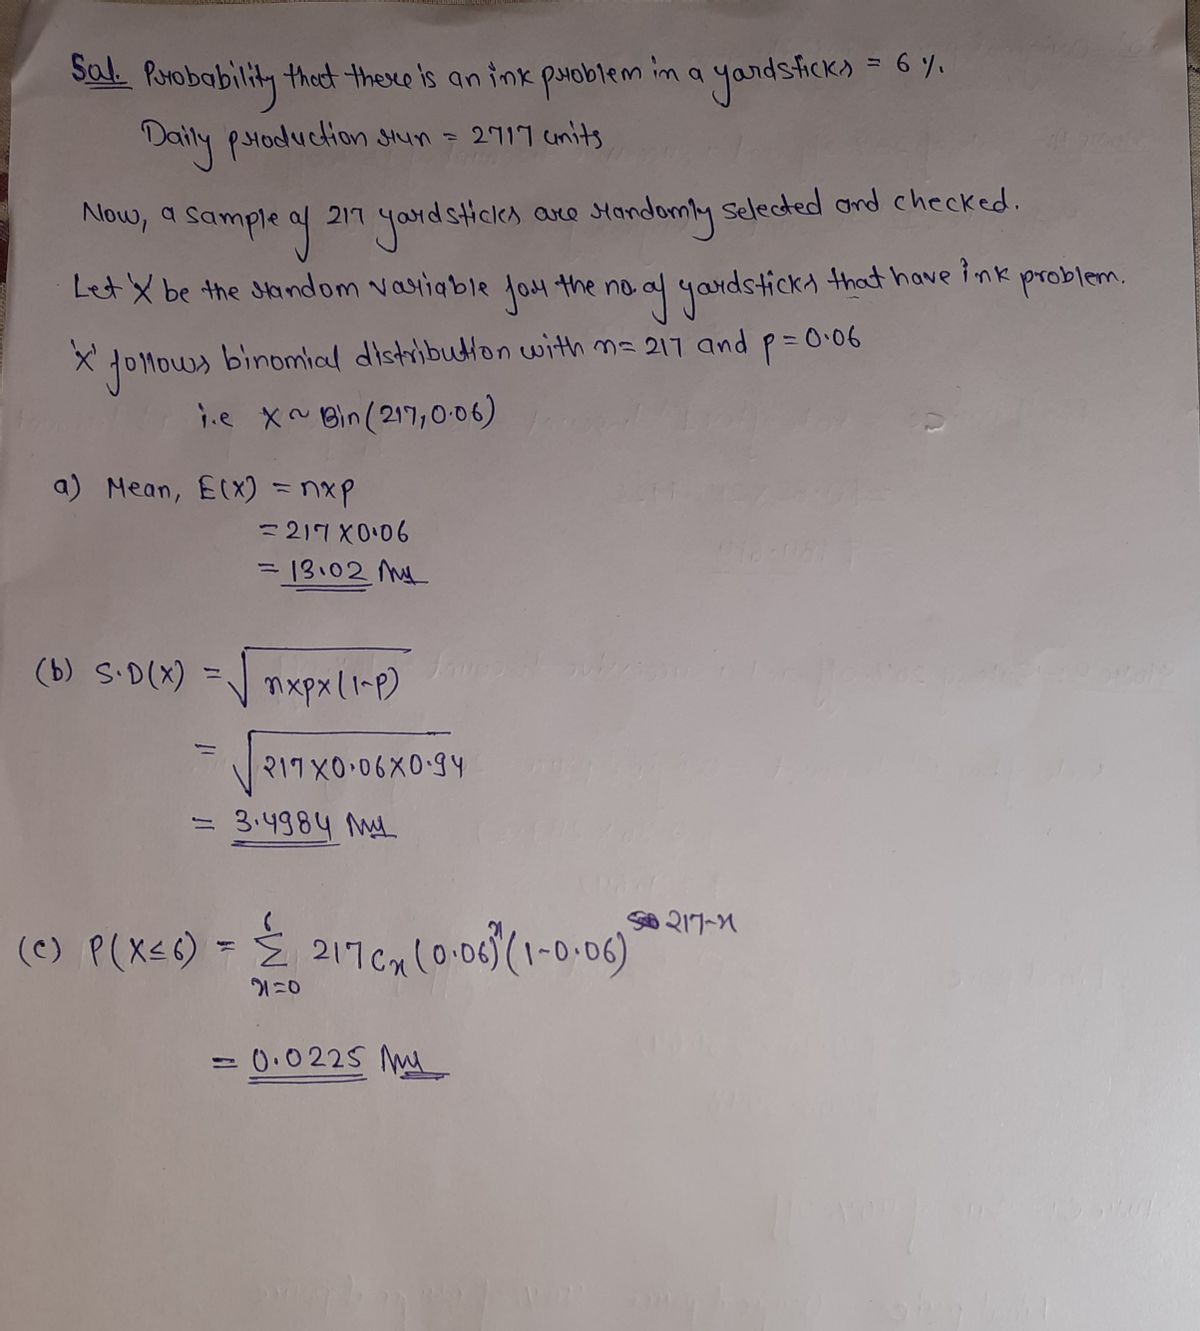 Sol. Probability that there is an ink problem in a yardsticks = 6 %.
Daily production run = 2717 units
Now, a sample of 217 yardsticks are randomly selected and checked.
Let 'X' be the random variable for the no. of yardsticks that have ink problem.
'X' follows binomial distribution with n = 217 and p = 0.06
i.e X ~ Bin(217, 0.06)
a) Mean, E(X) = n×p
= 217 × 0.06
= 13.02 Ans
(b) S.D(X) = √n×p×(1-p)
= √217×0.06×0.94
= 3.4984 Ans
(c) P(X≤6) = 6Σx=0 217Cx (0.06)^x (1-0.06)^217-x
= 0.0225 Ans